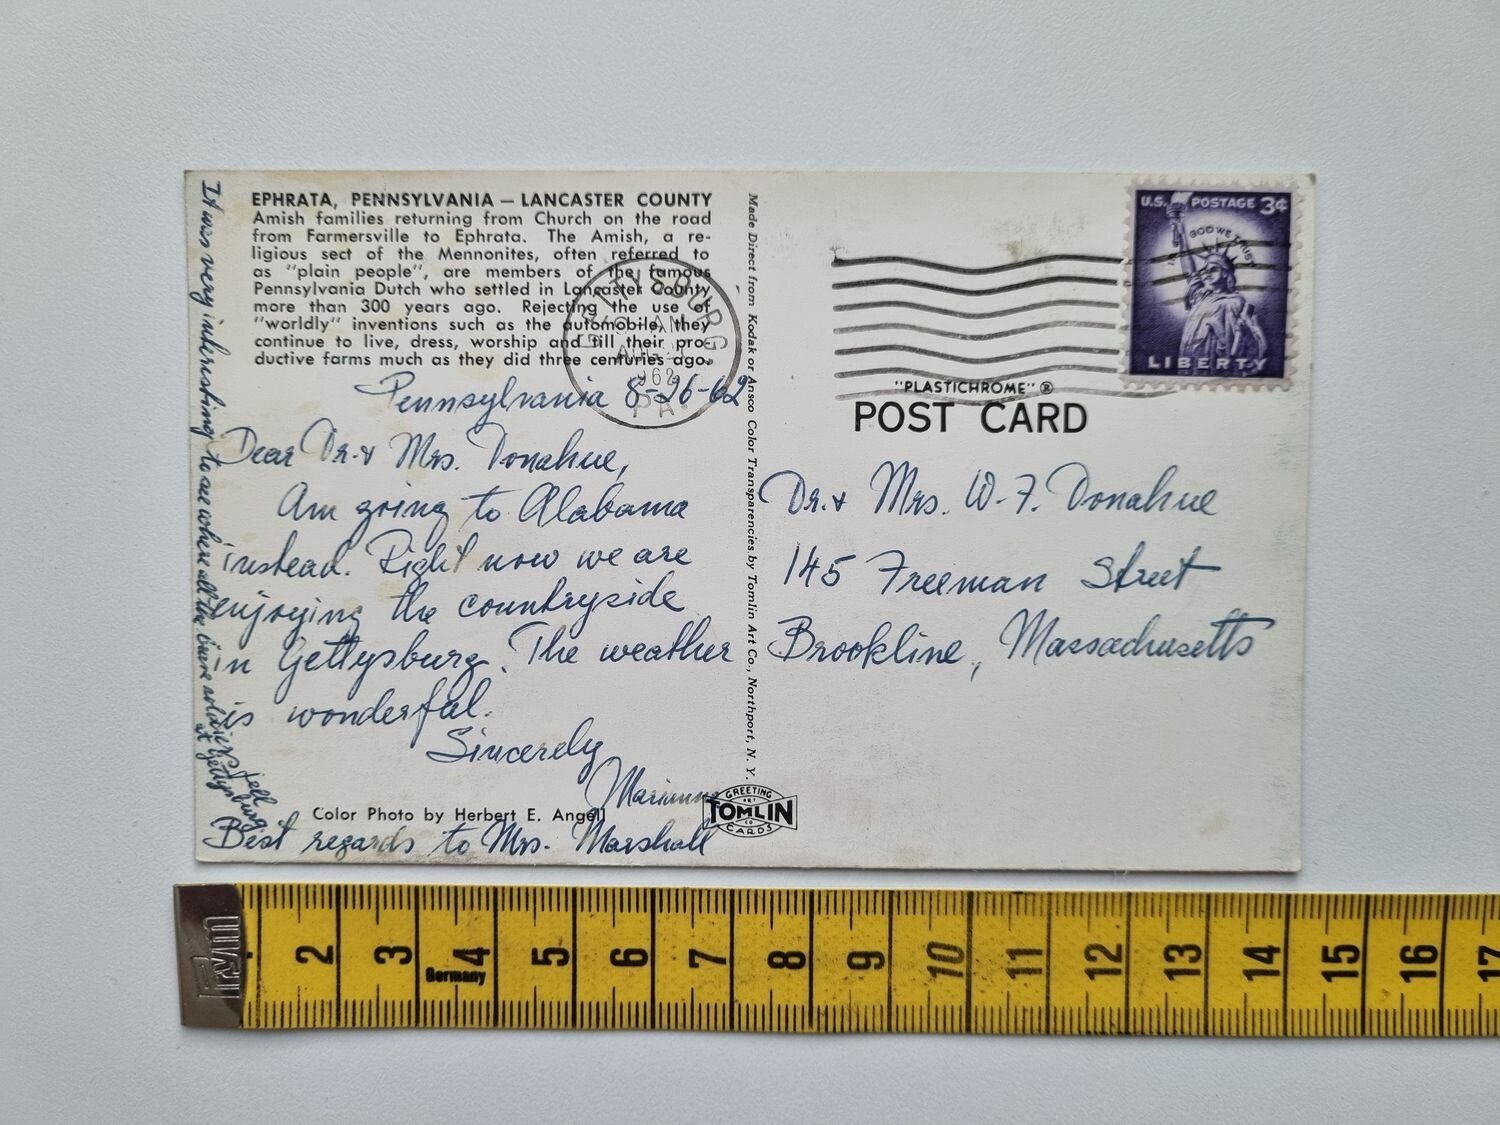 EPHRATA, PENNSYLVANIA — LANCASTER COUNTY
Amish families returning from Church on the road
from Farmersville to Ephrata. The Amish, a re-
ligious sect of the Mennonites, often referred to
as "plain people", are members of the famous
Pennsylvania Dutch who settled in Lancaster County
more than 300 years ago. Rejecting the use of
"worldly" inventions such as the automobile, they
continue to live, dress, worship and till their pro-
ductive farms much as they did three centuries ago.
GETTYSBURG,
AM
AUG
1962
PA.
Pennsylvania 8-26-62
Dear Dr. & Mrs. Donahue,
Am going to Alabama
instead. Right now we are
enjoying the countryside
in Gettysburg. The weather
is wonderful.
Sincerely
Marianne
Color Photo by Herbert E. Angell
Best regards to Mrs. Marshall
It was very interesting to see where all the brave soldiers fell
at Gettysburg.
Made Direct from Kodak or Ansco Color Transparencies by Tomlin Art Co., Northport, N. Y.
GREETING
ART
TOMLIN
CO
CARDS
U.S. POSTAGE 3¢
IN GOD WE TRUST
LIBERTY
"PLASTICHROME" ®
POST CARD
Dr. & Mrs. W. F. Donahue
145 Freeman Street
Brookline, Massachusetts
Prym
2 3 4 5 6 7 8 9 10 11 12 13 14 15 16 17
Germany